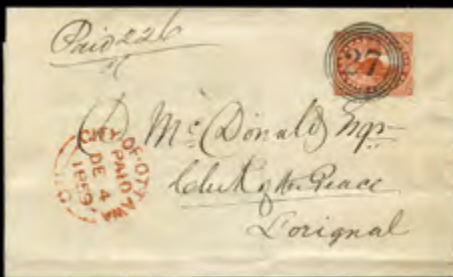 Paid 226
27
D. McDonald Esqr
Clerk of the Peace
Lorignal
CITY OF OTTAWA
PAID
DE 4
1859